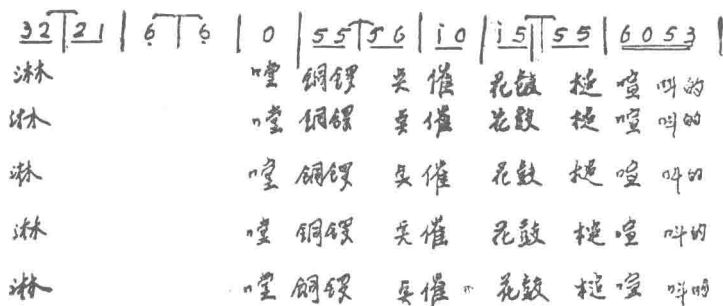 32 21 | 6 6 | 0 | 55 56 | i0 | i5 55 | 6053 |
淋 嘡 铜锣 哭 催 花鼓 槌 喧 叫的
淋 嘡 铜锣 哭 催 花鼓 槌 喧 叫的
淋 嘡 铜锣 哭 催 花鼓 槌 喧 叫的
淋 嘡 铜锣 哭 催 花鼓 槌 喧 叫的
淋 嘡 铜锣 哭 催 花鼓 槌 喧 叫的